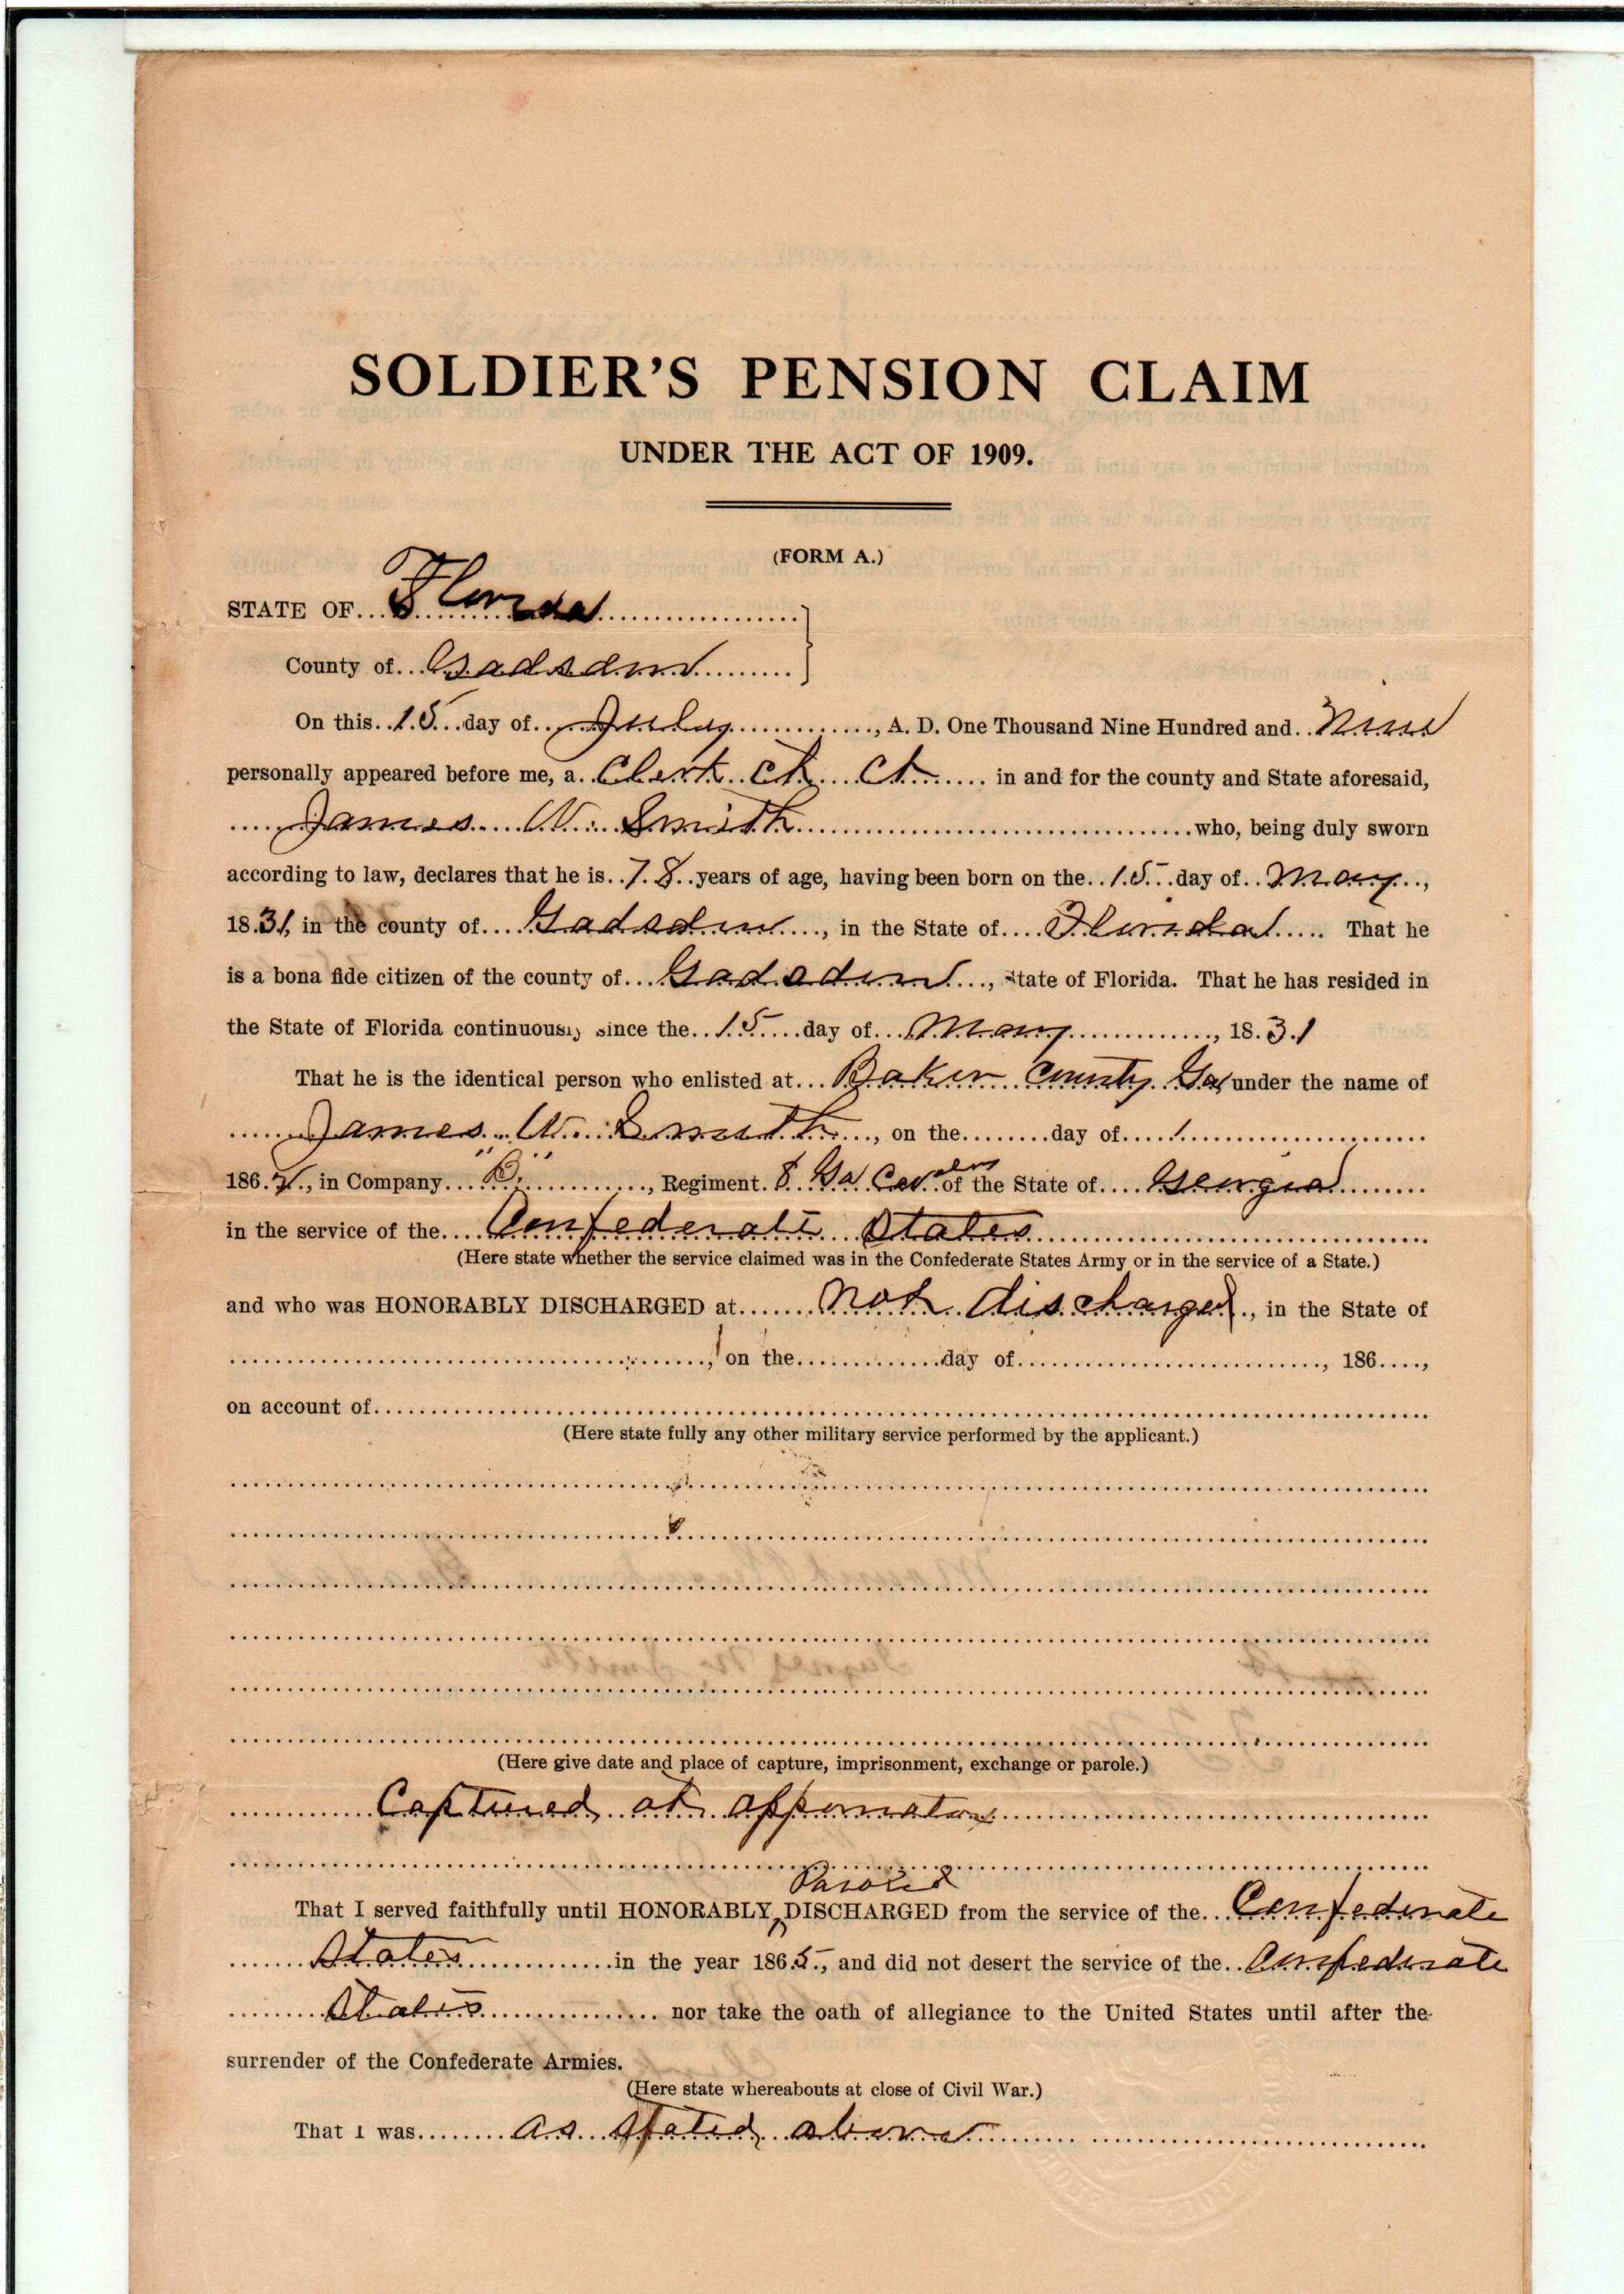 SOLDIER'S PENSION CLAIM
UNDER THE ACT OF 1909.
(FORM A.)
STATE OF Florida
County of Gadsden
On this 15 day of July, A. D. One Thousand Nine Hundred and Nine
personally appeared before me, a Clerk Ck Ct in and for the county and State aforesaid,
James W. Smith who, being duly sworn
according to law, declares that he is 78 years of age, having been born on the 15 day of May,
1831, in the county of Gadsden, in the State of Florida. That he
is a bona fide citizen of the county of Gadsden, State of Florida. That he has resided in
the State of Florida continuously since the 15 day of May, 1831
That he is the identical person who enlisted at Baker County Ga, under the name of
James W. Smith, on the day of
186, in Company "B", Regiment 8 Ga Cavalry of the State of Georgia
in the service of the Confederate States
(Here state whether the service claimed was in the Confederate States Army or in the service of a State.)
and who was HONORABLY DISCHARGED at not discharged, in the State of
, on the day of , 186 ,
on account of
(Here state fully any other military service performed by the applicant.)
(Here give date and place of capture, imprisonment, exchange or parole.)
Captured at appomatox
Paroled
That I served faithfully until HONORABLY DISCHARGED from the service of the Confederate
States in the year 1865, and did not desert the service of the Confederate
States nor take the oath of allegiance to the United States until after the
surrender of the Confederate Armies.
(Here state whereabouts at close of Civil War.)
That I was as stated above